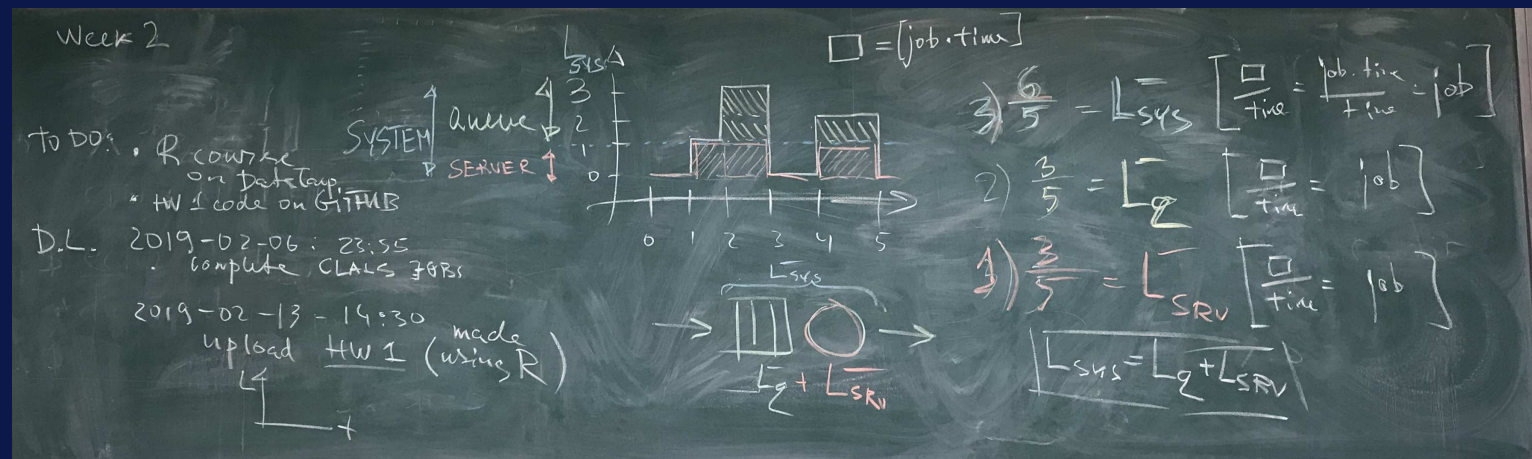 Week 2
TO DO: • R course
on DataCamp,
• HW 1 code on GITHUB
D.L. 2019-02-06 : 23:55
• complete CLALS JOBS
2019-02-13-14:30
upload HW 1 (made using R)
L
t
SYSTEM
Queue
SERVER
L sys
3
2
1
0
0 1 2 3 4 5
□ = [job·time]
L sys
L q + L SRV
3) 6/5 = L sys [□/time = job·time/time = job]
2) 3/5 = L q [□/time = job]
1) 3/5 = L SRV [□/time = job]
L sys = L q + L SRV